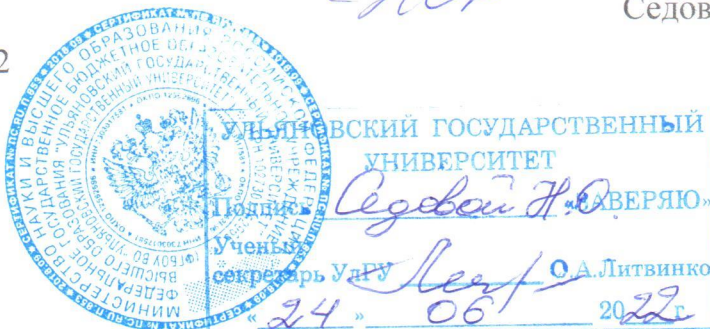 Седов
2
УЛЬЯНОВСКИЙ ГОСУДАРСТВЕННЫЙ
УНИВЕРСИТЕТ
Подпись Седовой Н.О. «ЗАВЕРЯЮ»
Ученый
секретарь УлГУ О.А.Литвинко
« 24 » 06 2022 г.
МИНИСТЕРСТВО НАУКИ И ВЫСШЕГО ОБРАЗОВАНИЯ РОССИЙСКОЙ ФЕДЕРАЦИИ
ФЕДЕРАЛЬНОЕ ГОСУДАРСТВЕННОЕ БЮДЖЕТНОЕ ОБРАЗОВАТЕЛЬНОЕ УЧРЕЖДЕНИЕ
ВЫСШЕГО ОБРАЗОВАНИЯ "УЛЬЯНОВСКИЙ ГОСУДАРСТВЕННЫЙ УНИВЕРСИТЕТ"